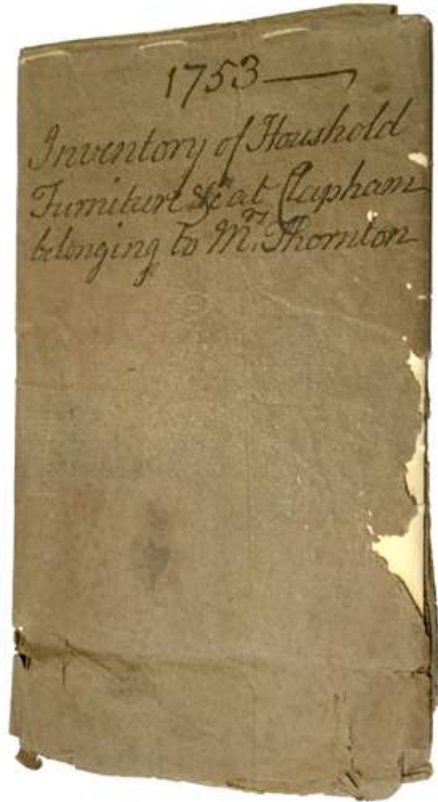 1753
Inventory of Houshold
Furniture &c at Clapham
belonging to Mr. Thornton